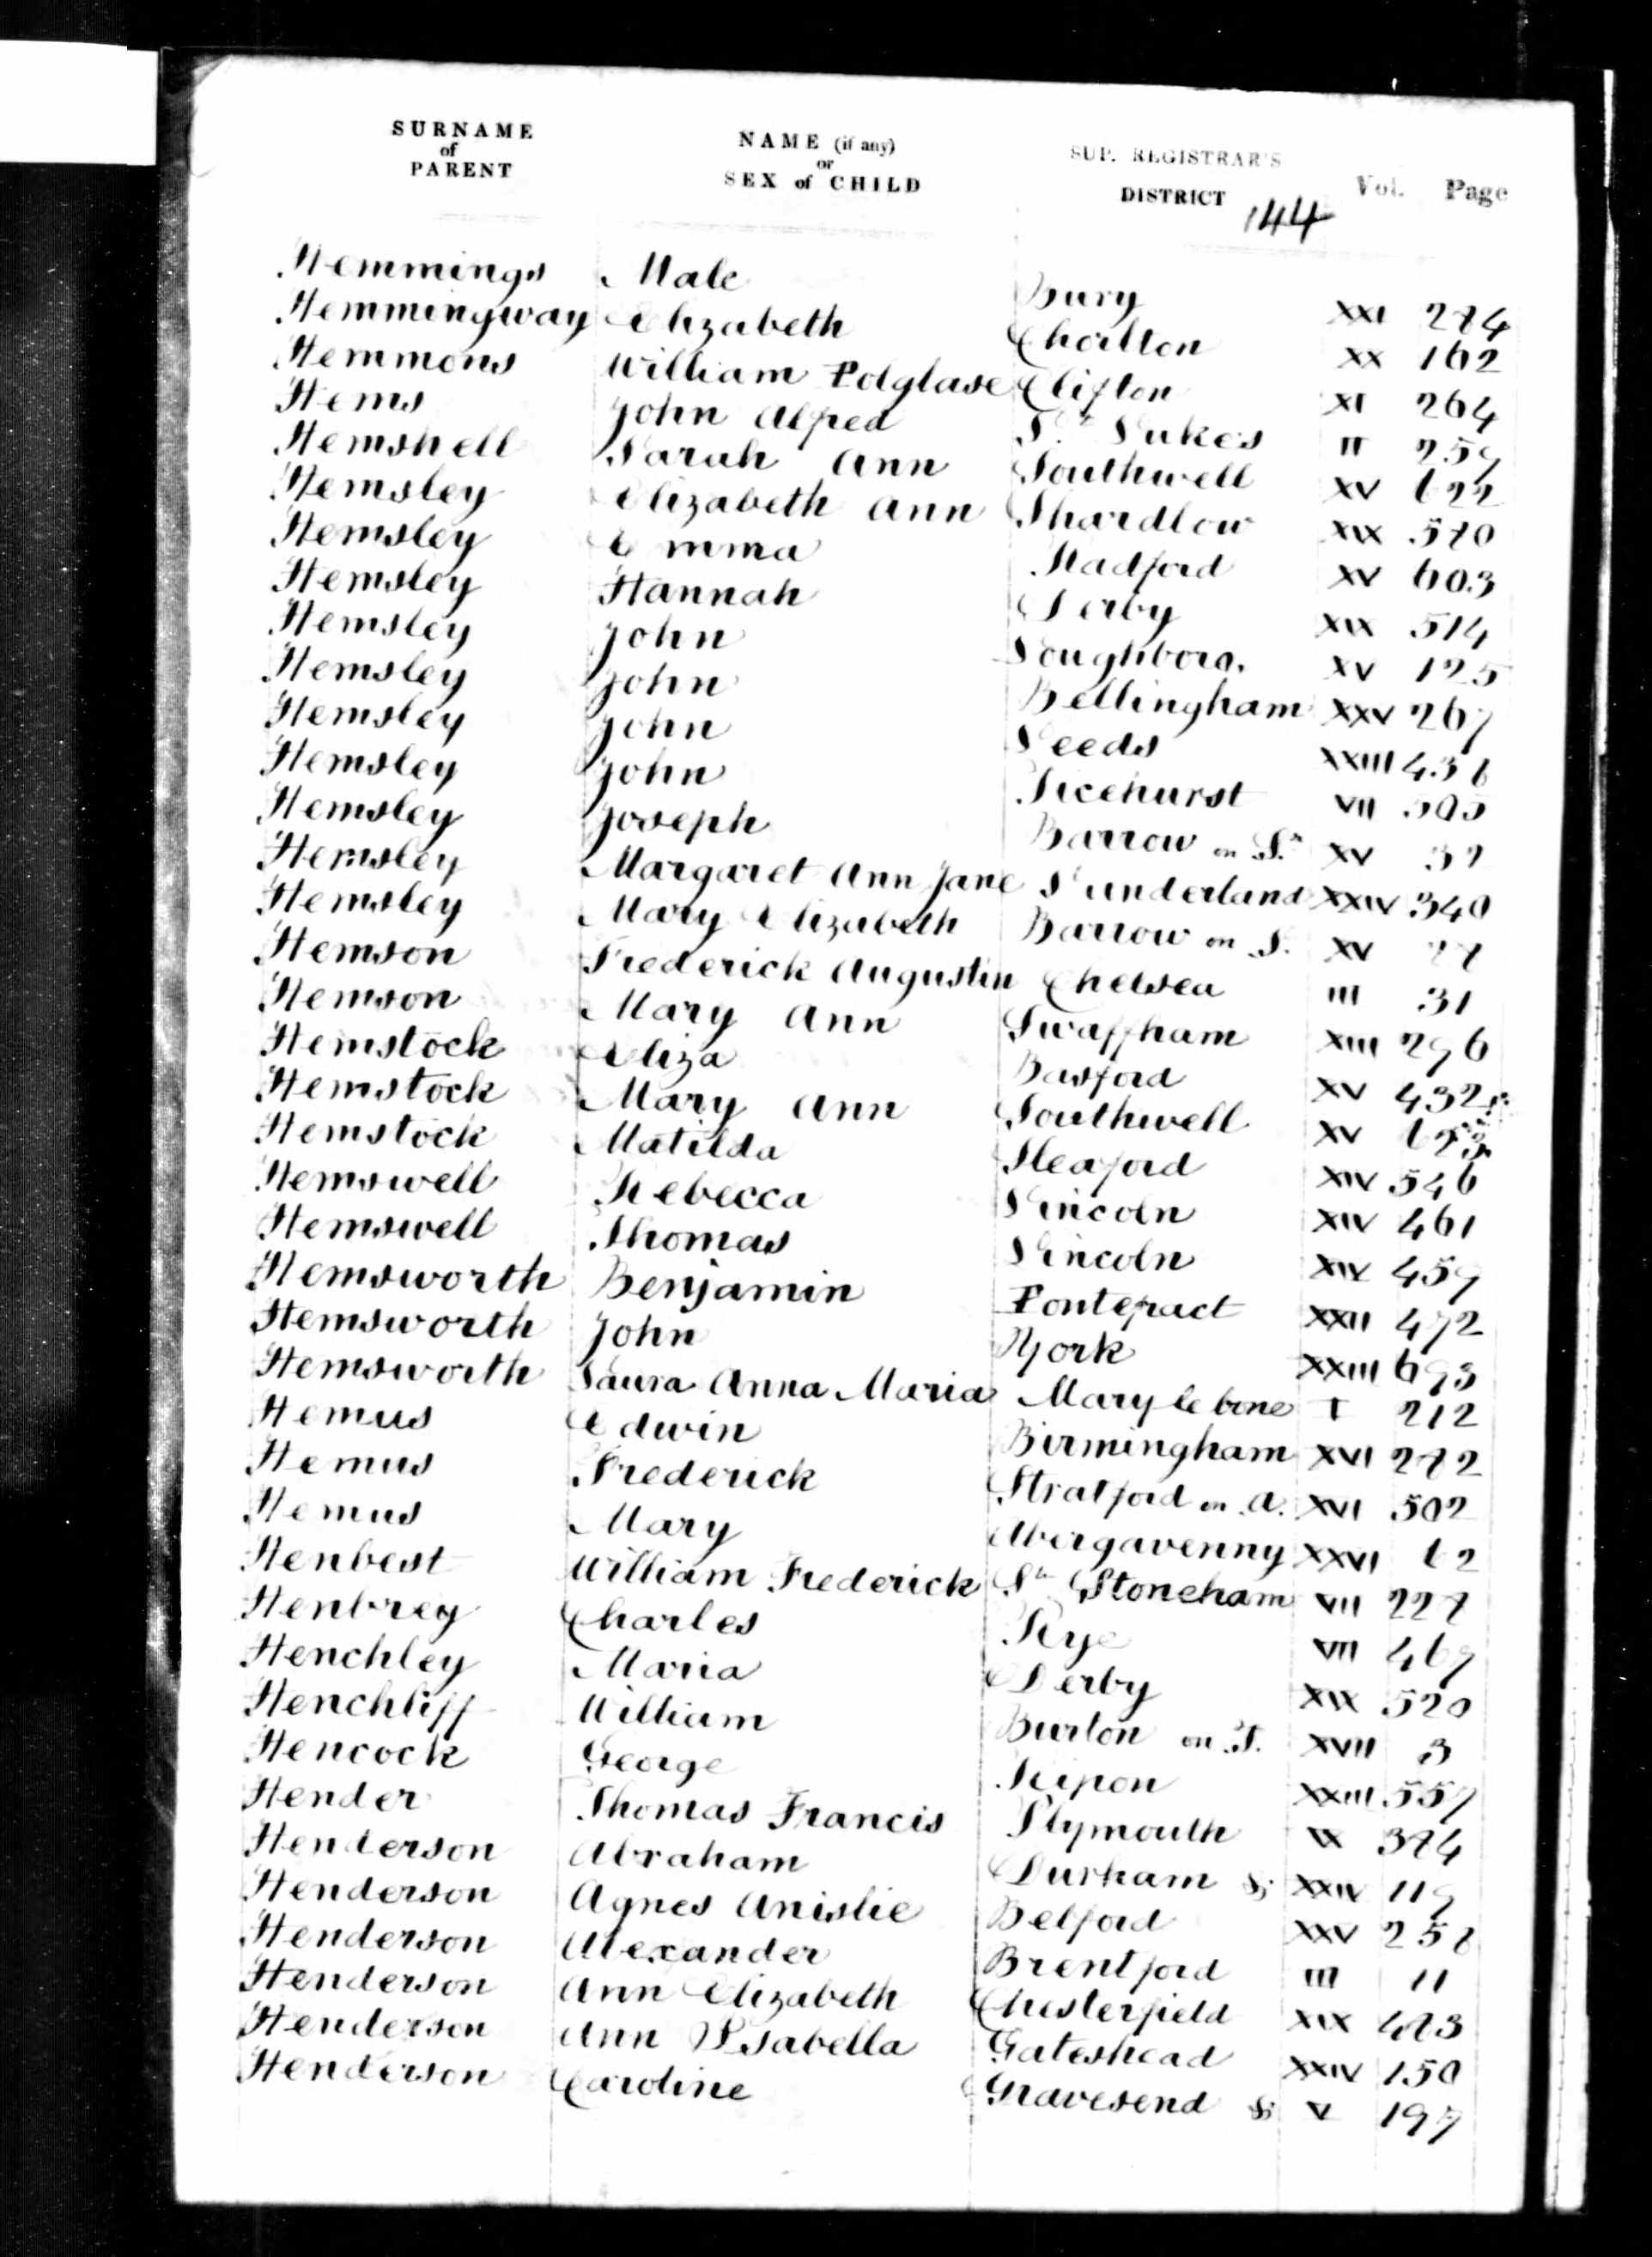 SURNAME of PARENT NAME (if any) or SEX of CHILD SUP. REGISTRAR'S DISTRICT Vol. Page
144
Hemmings Male Bury XXI 274
Hemmingway Elizabeth Chorlton XX 162
Hemmons William Polglase Clifton XI 264
Hems John Alfred St Luke's II 259
Hemshell Sarah Ann Southwell XV 622
Hemsley Elizabeth Ann Shardlow XIX 570
Hemsley Emma Radford XV 603
Hemsley Hannah Derby XIX 514
Hemsley John Loughboro. XV 125
Hemsley John Bellingham XXV 267
Hemsley John Leeds XXIII 436
Hemsley John Ticehurst VII 505
Hemsley Joseph Barrow on Sr XV 37
Hemsley Margaret Ann Jane Sunderland XXIV 340
Hemsley Mary Elizabeth Barrow on S. XV 27
Hemson Frederick Augustin Chelsea III 31
Hemson Mary Ann Swaffham XIII 296
Hemstock Eliza Basford XV 432
Hemstock Mary Ann Southwell XV
Hemstock Matilda Sleaford XIV 546
Hemswell Rebecca Lincoln XIV 461
Hemswell Thomas Lincoln XIV 459
Hemsworth Benjamin Pontefract XXII 472
Hemsworth John York XXIII 693
Hemsworth Laura Anna Maria Mary le bone I 212
Hemus Edwin Birmingham XVI 272
Hemus Frederick Stratford on A. XVI 502
Hemus Mary Abergavenny XXVI 62
Henbest William Frederick Sth Stoneham VII 227
Henbrey Charles Rye VII 469
Henchley Maria Derby XIX 520
Henchliff William Burton on T. XVII 3
Hencock George Ripon XXIII 557
Hender Thomas Francis Plymouth IX 374
Henderson Abraham Durham & XXIV 119
Henderson Agnes Anislie Belford XXV 258
Henderson Alexander Brentford III 11
Henderson Ann Elizabeth Chesterfield XIX 473
Henderson Ann Isabella Gateshead XXIV 150
Henderson Caroline Gravesend & V 197